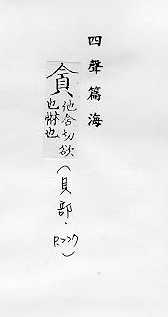 四聲篇海
貪他含切欲
也惏也
(貝部.